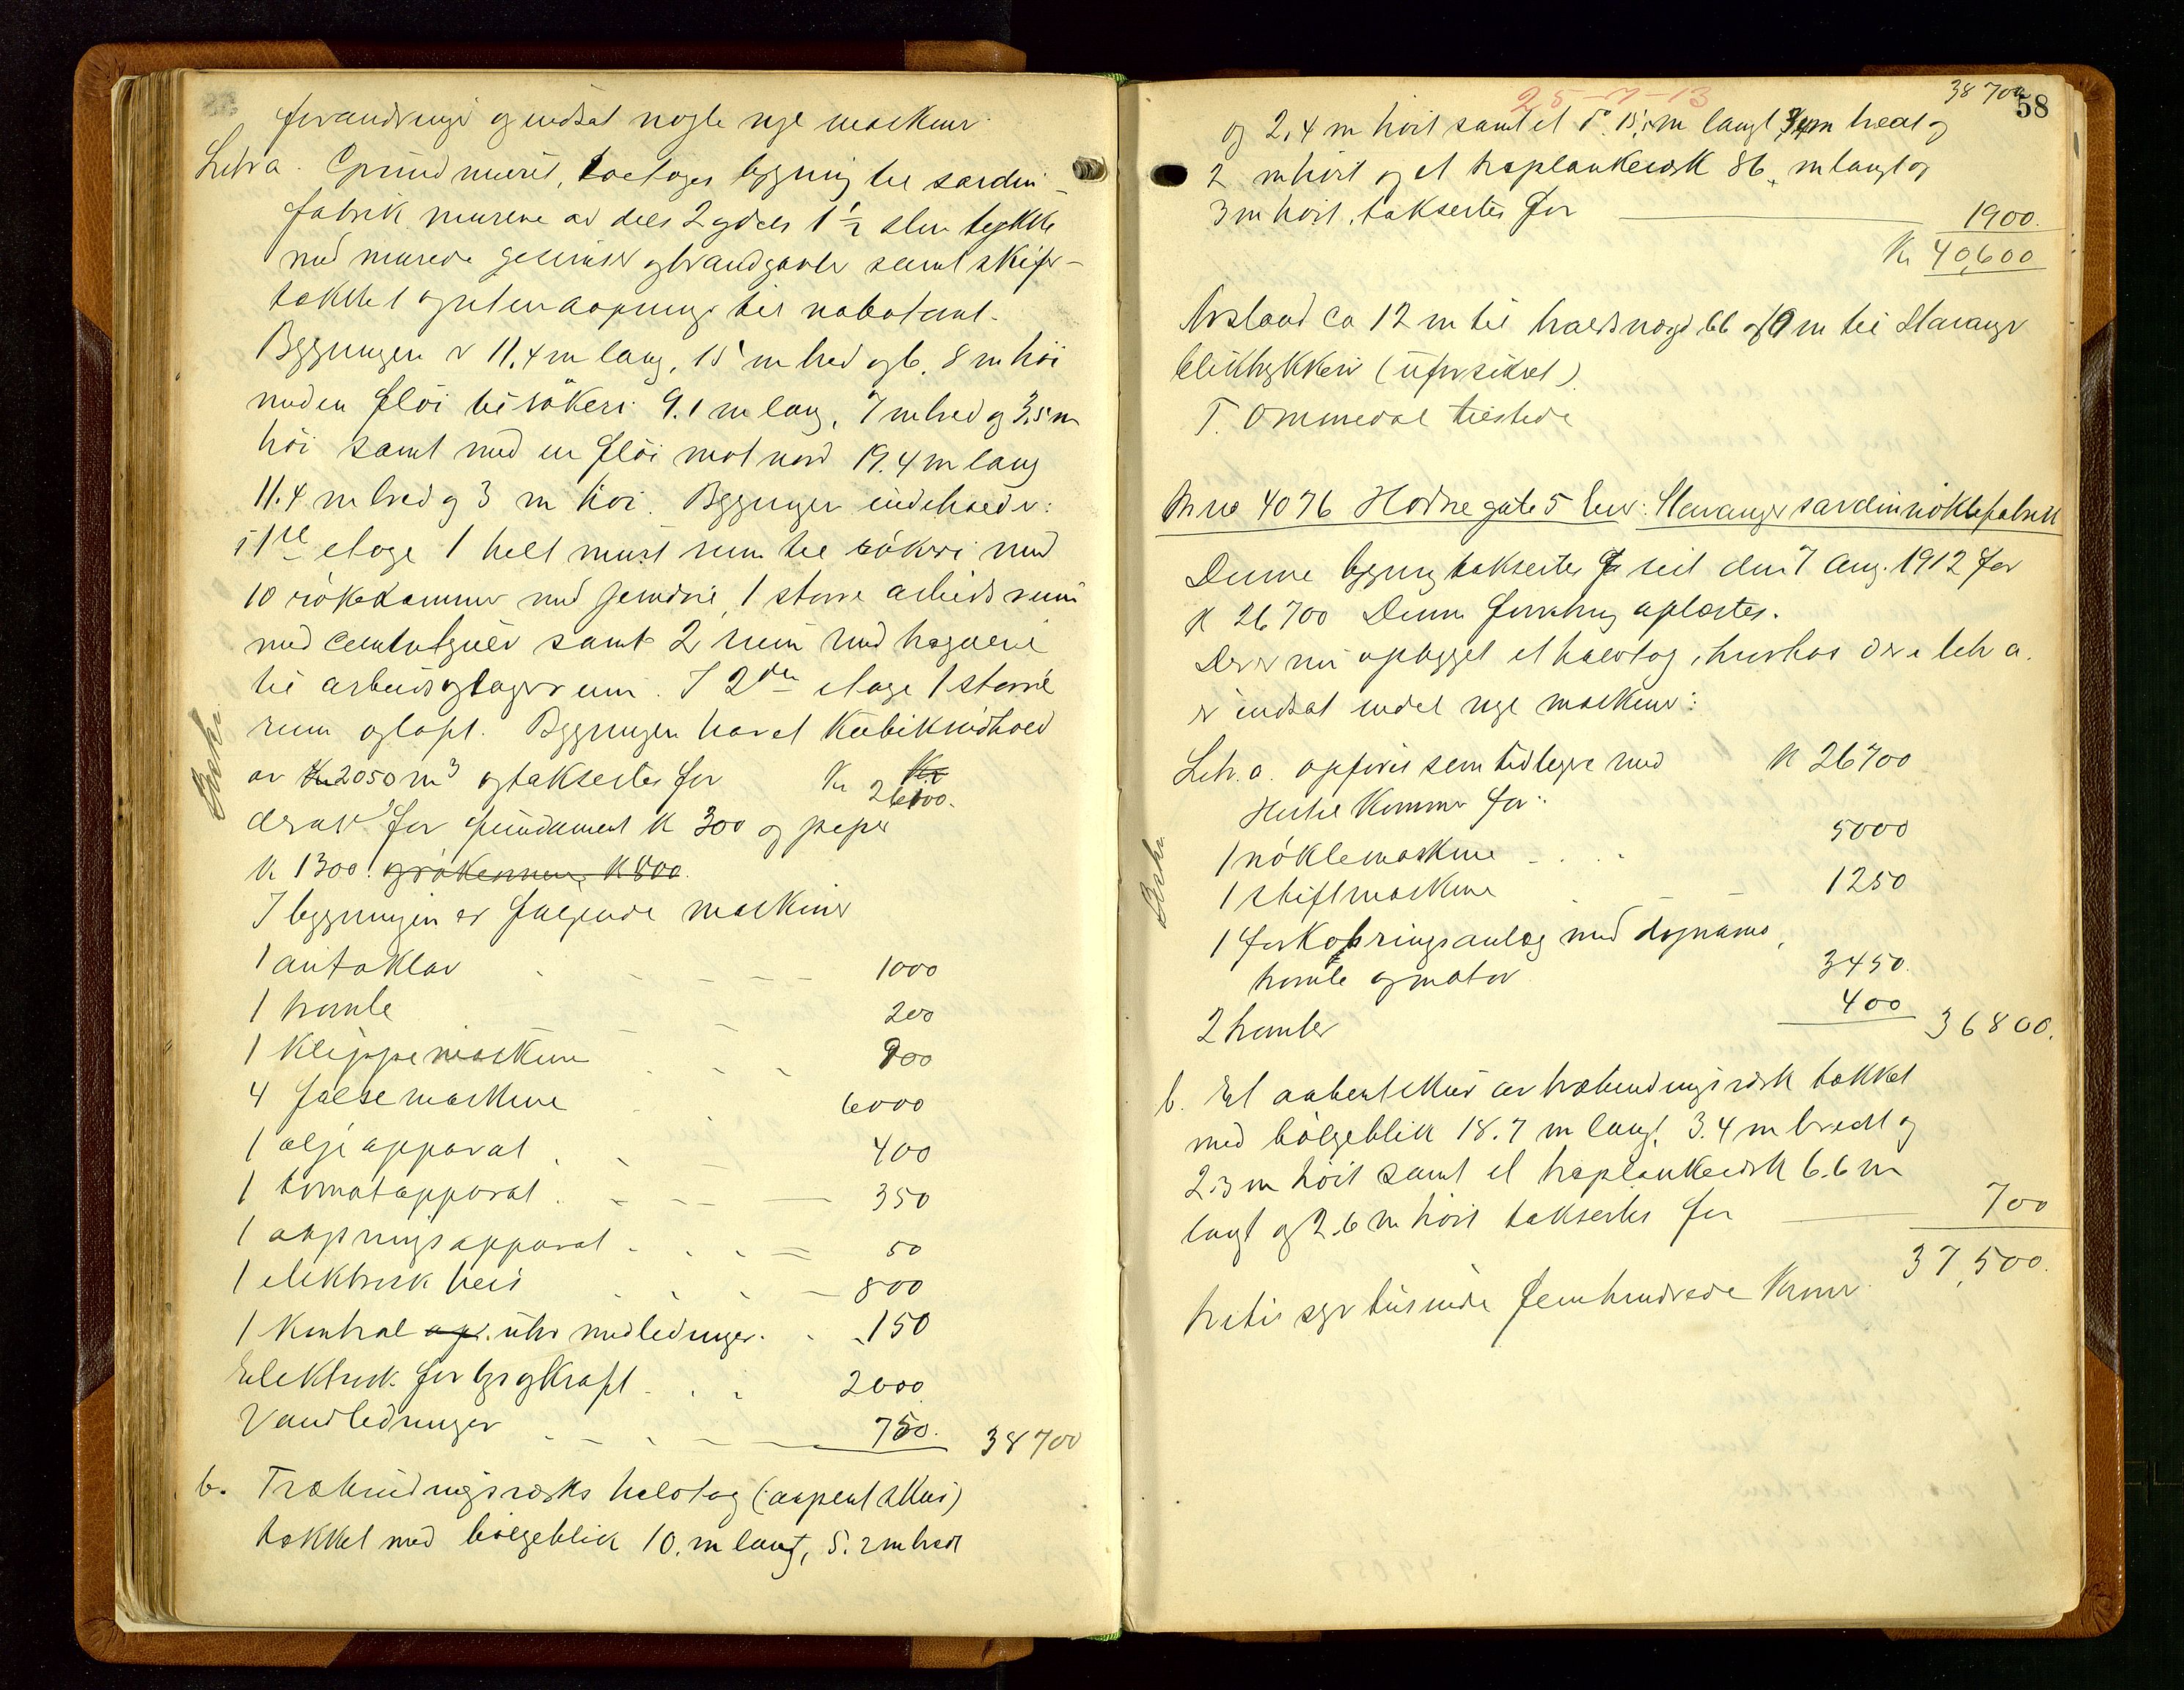 forandringer og indsat nogle nye maskiner
Litra a. Grundmuret, toetages bygning til sardin-
fabrik murene av dels 2 og dels 1½ sten tykke
med murede gesimser og brandgavler samt skifer-
tækket og uten aapninger til nabotomt.
Bygningen er 11.4 m lang, 15 m bred og 6.8 m høi
med en fløi til røkeri 9.1 m lang, 7 m bred og 3.5 m
høi samt med en fløi mot nord 19.4 m lang
11.4 m bred og 3 m høi. Bygningen indeholder:
i 1ste etage 1 helt muret rum til røkeri med
10 røkekammer med jerndøre, 1 større arbeidsrum
med cementgulv samt 2 rum med trægulve
til arbeids og lagerrum. I 2den etage 1 større
rum og loft. Bygningen har et kubikindhold
av 2050 m³ og taksertes for Kr 26100.
derav for fundament K 300 og piper
K 1300. og røkerummer K 800.
I bygningen er følgende maskiner
1 autoklav 1000
1 tromle 200
1 klippemaskine 900
4 falsemaskine 6000
1 oljeapparat 400
1 tomatapparat 350
1 apparat 50
1 elektrisk heis 800
1 kontrol ap. uhr med ledninger. 150
Elektrisk for lys og kraft 2000
Vandledninger 750. 38700
b. Træbindingsværks halvtag (aapent skur)
tækket med bølgeblik 10. m langt, 5.2 m bredt
58
25-7-13
38700
og 2,4 m høit samt et do. 15, m langt 3,4 m bredt og
2 m høit og et træplankeværk 86, m langt og
3 m høit, taksertes for 1900.
Kr 40,600
Avstand ca 12 m til og 10 m til Stavanger
bliktrykkeri (uforsikret).
T. Ommedal tilstede
Br no 4076 Hodnegate 5 Eier: Stavanger sardinnøklefabrik
Denne bygning taksertes sidst den 7 Aug. 1912 for
K 26700 Denne forretning oplæstes.
Der er nu opbygget et halvtag, hvorhos der i litr a.
er indsat endel nye maskiner:
Litr. a. opføres som tidligere med K 26700
Hertil kommer for:
1 nøklemaskine 5000
1 stiftmaskine 1250
1 forkobringsanlæg med dynamo,
tromle og motor 3450.
2 tromler 400 36800.
b. Et aabent skur av træbindingsværk tækket
med bølgeblik 18.7 m langt, 3.4 m bredt og
2.3 m høit samt et træplankeværk 6.6 m
langt og 2.6 m høit taksertes for 700
37,500.
tretti syv tusinde femhundrede Kroner